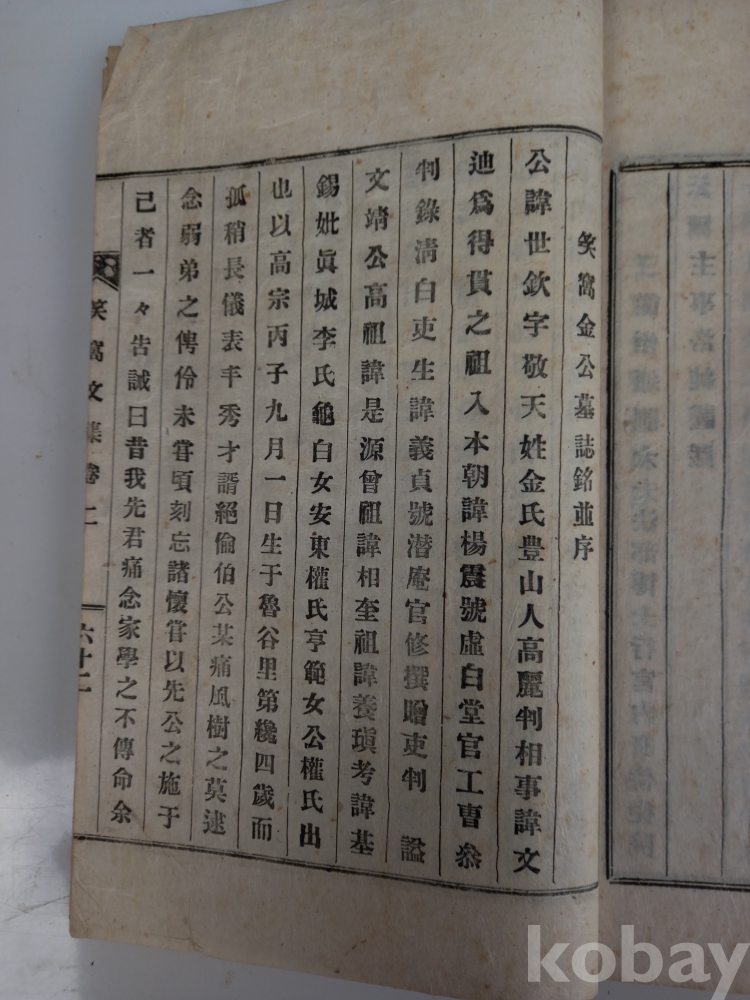 笑窩金公墓誌銘並序
公諱世欽字敬天姓金氏豊山人高麗判相事諱文
迪爲得貫之祖入本朝諱楊震號虛白堂官工曺叅
判錄淸白吏生諱義貞號潛庵官修撰贈吏判 謚
文靖公高祖諱是源曾祖諱相奎祖諱養瑱考諱基
錫妣眞城李氏龜白女安東權氏亨範女公權氏出
也以高宗丙子九月一日生于魯谷里第纔四歲而
孤稍長儀表丰秀才諝絕倫伯公某痛風樹之莫逮
念弱弟之俜伶未甞頃刻忘諸懷甞以先公之施于
己者一々告誡曰昔我先君痛念家學之不傳命余
笑窩文集卷二
六十二
kobay